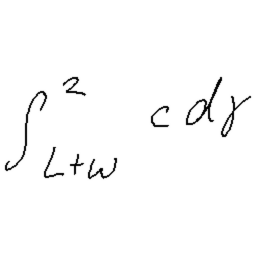 \int_{L+w}^{2} c d\gamma